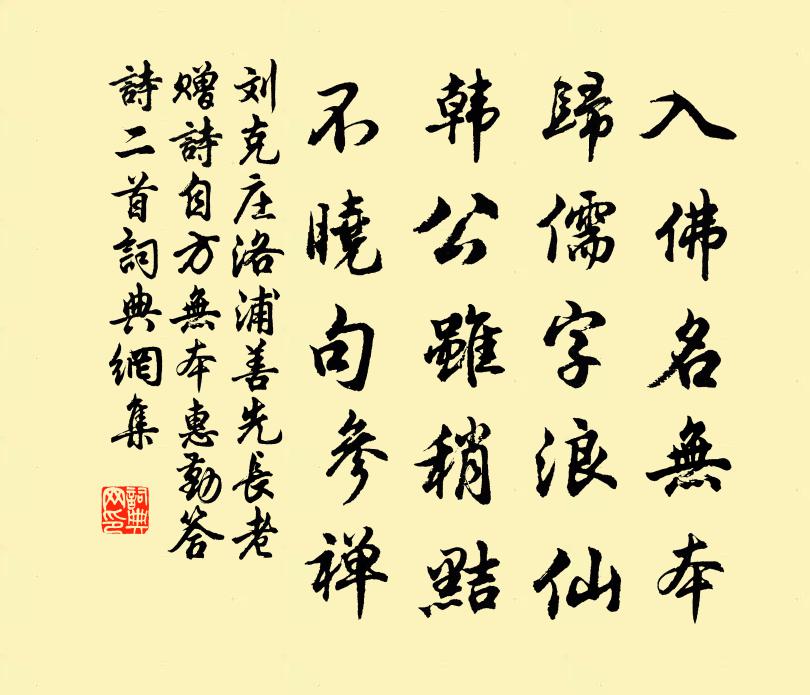 入佛名無本
歸儒字浪仙
韩公雖稍黠
不曉句參禅
刘克庄洛浦善先長老
赠詩自方無本惠勤答
詩二首詞典網集
詞典
网印